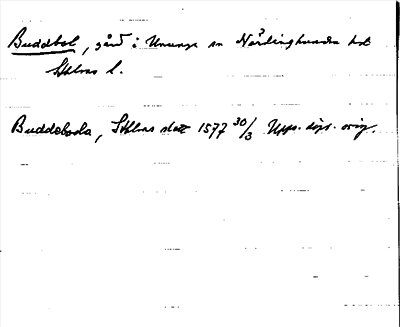 Buddbol, gård i Ununge sn Närdinghundra hd
Sthlms l.
Buddeboda, Sthlms slott 1577 30/3 Upps. dipl. orig.